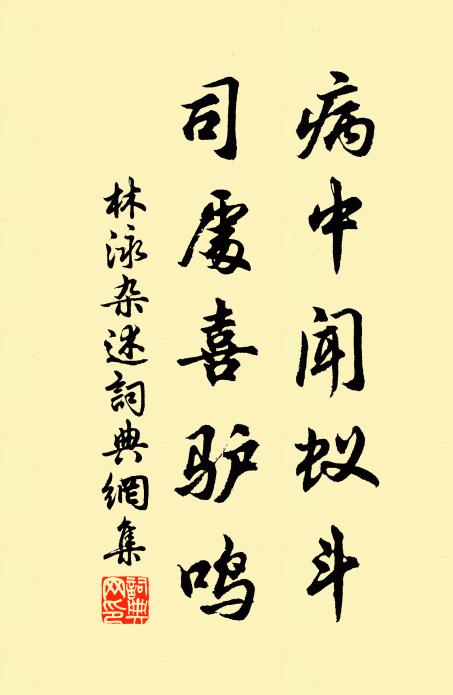 病中闻蚁斗
司處喜驴鸣
林泳杂述詞典網集
詞典
网印